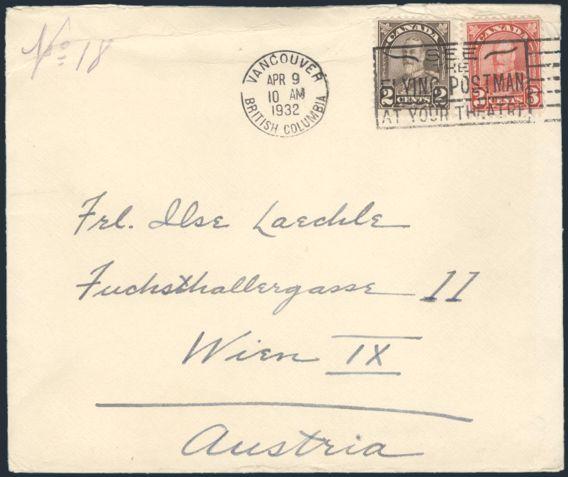 No 18
VANCOUVER
APR 9
10 AM
1932
BRITISH COLUMBIA
CANADA
2 2
CENTS
CANADA
3 3
CENTS
SEE
THE
FLYING POSTMAN
AT YOUR THEATRE
Frl. Ilse Laechle
Fuchsthallergasse 11
Wien IX
Austria